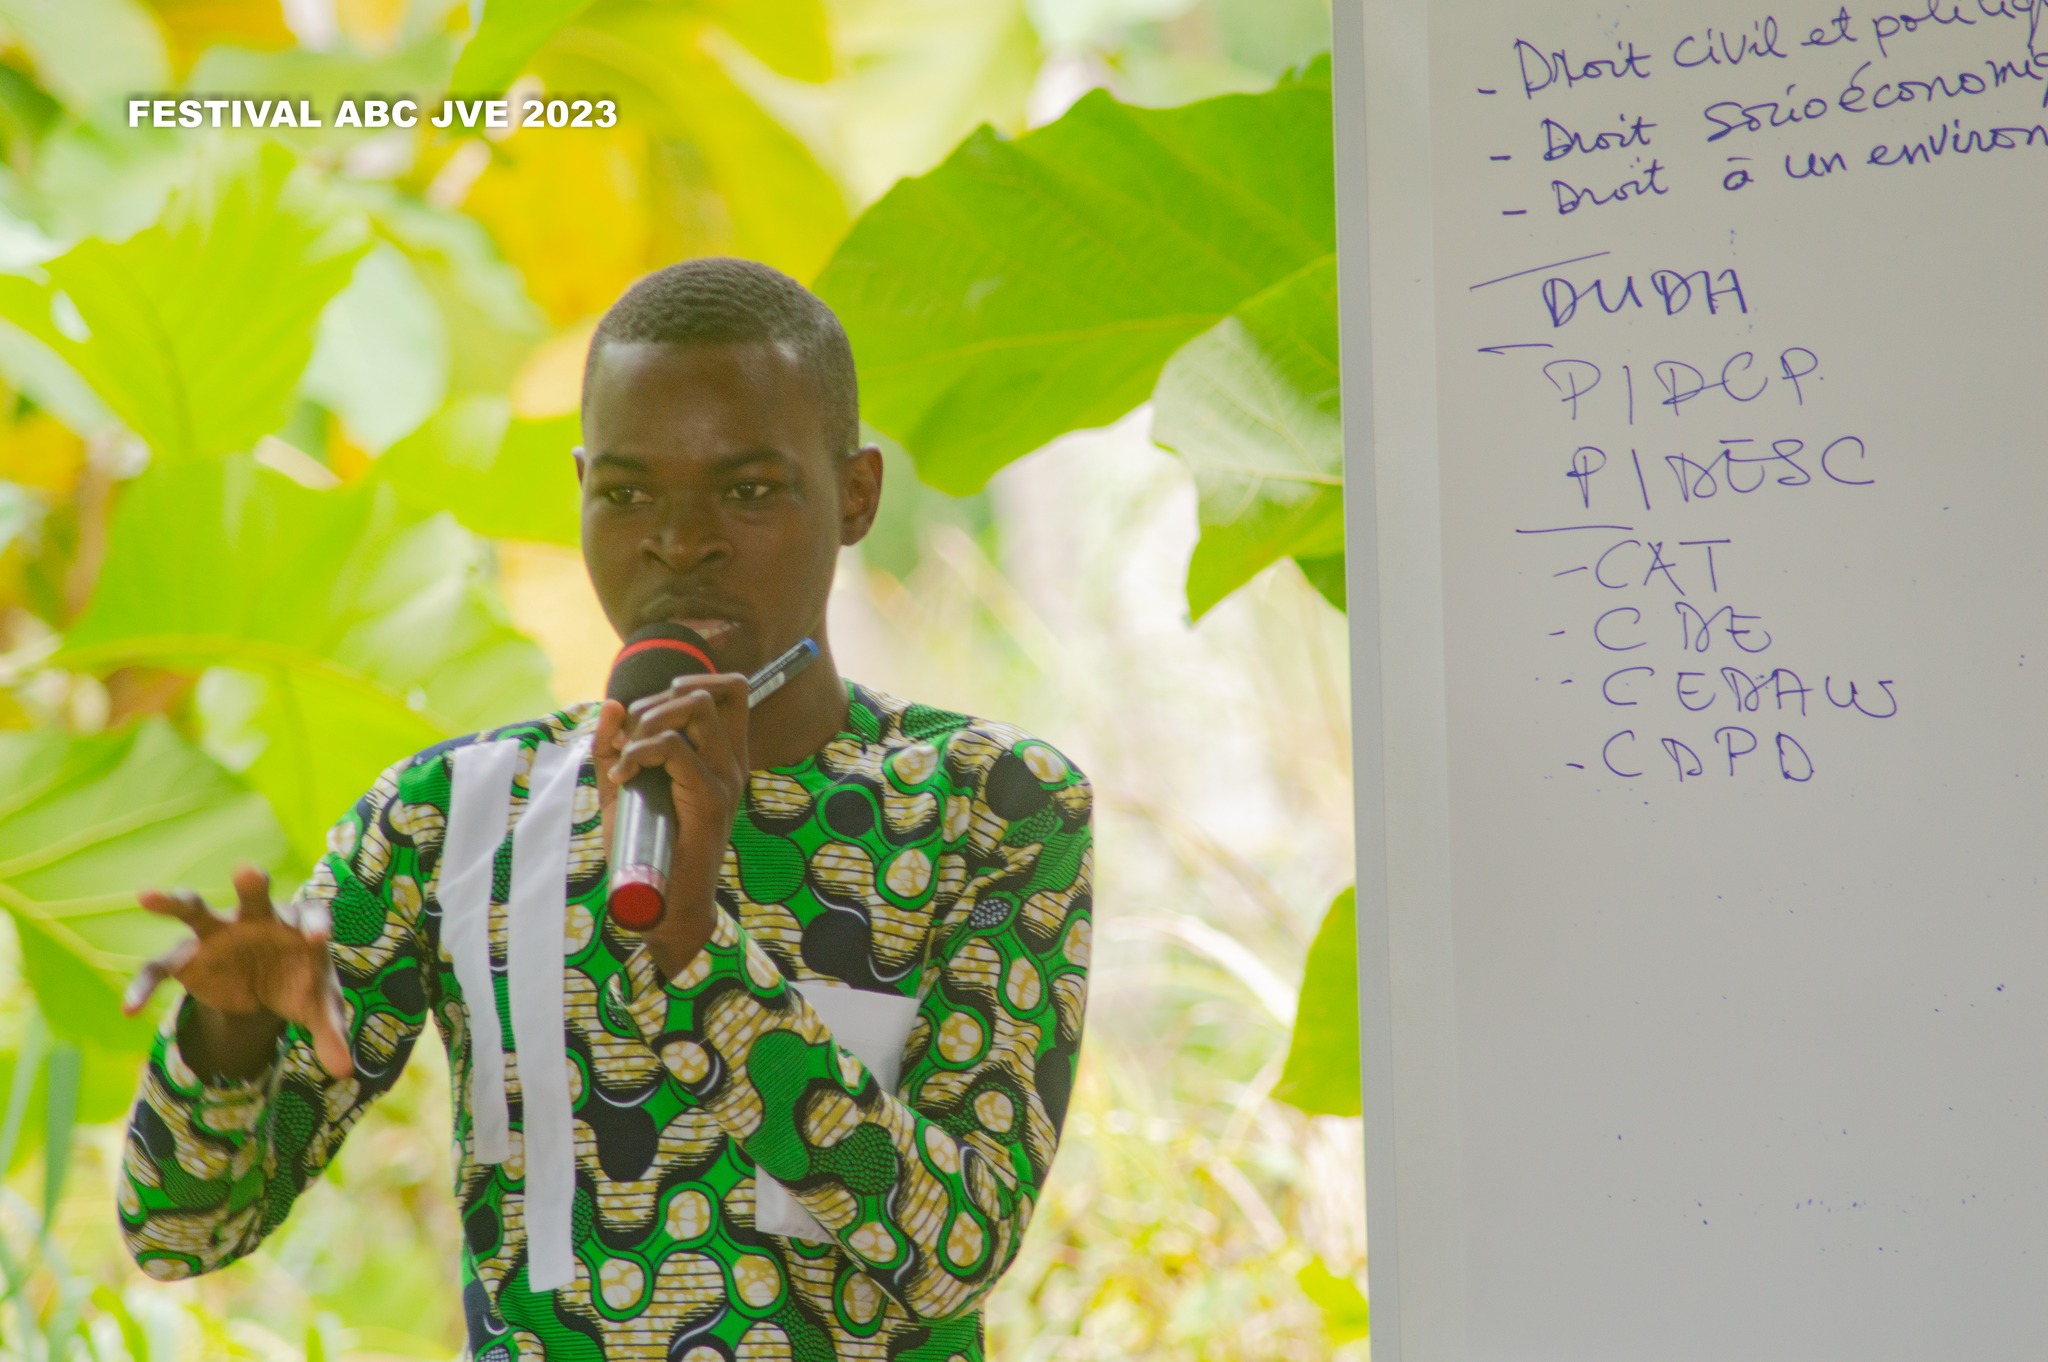 FESTIVAL ABC JVE 2023
- Droit civil et politiq
- Droit socioéconomiq
- Droit à un environ
DUDH
PIDCP
PIDESC
- CAT
- CDE
- CEDAW
- CDPD